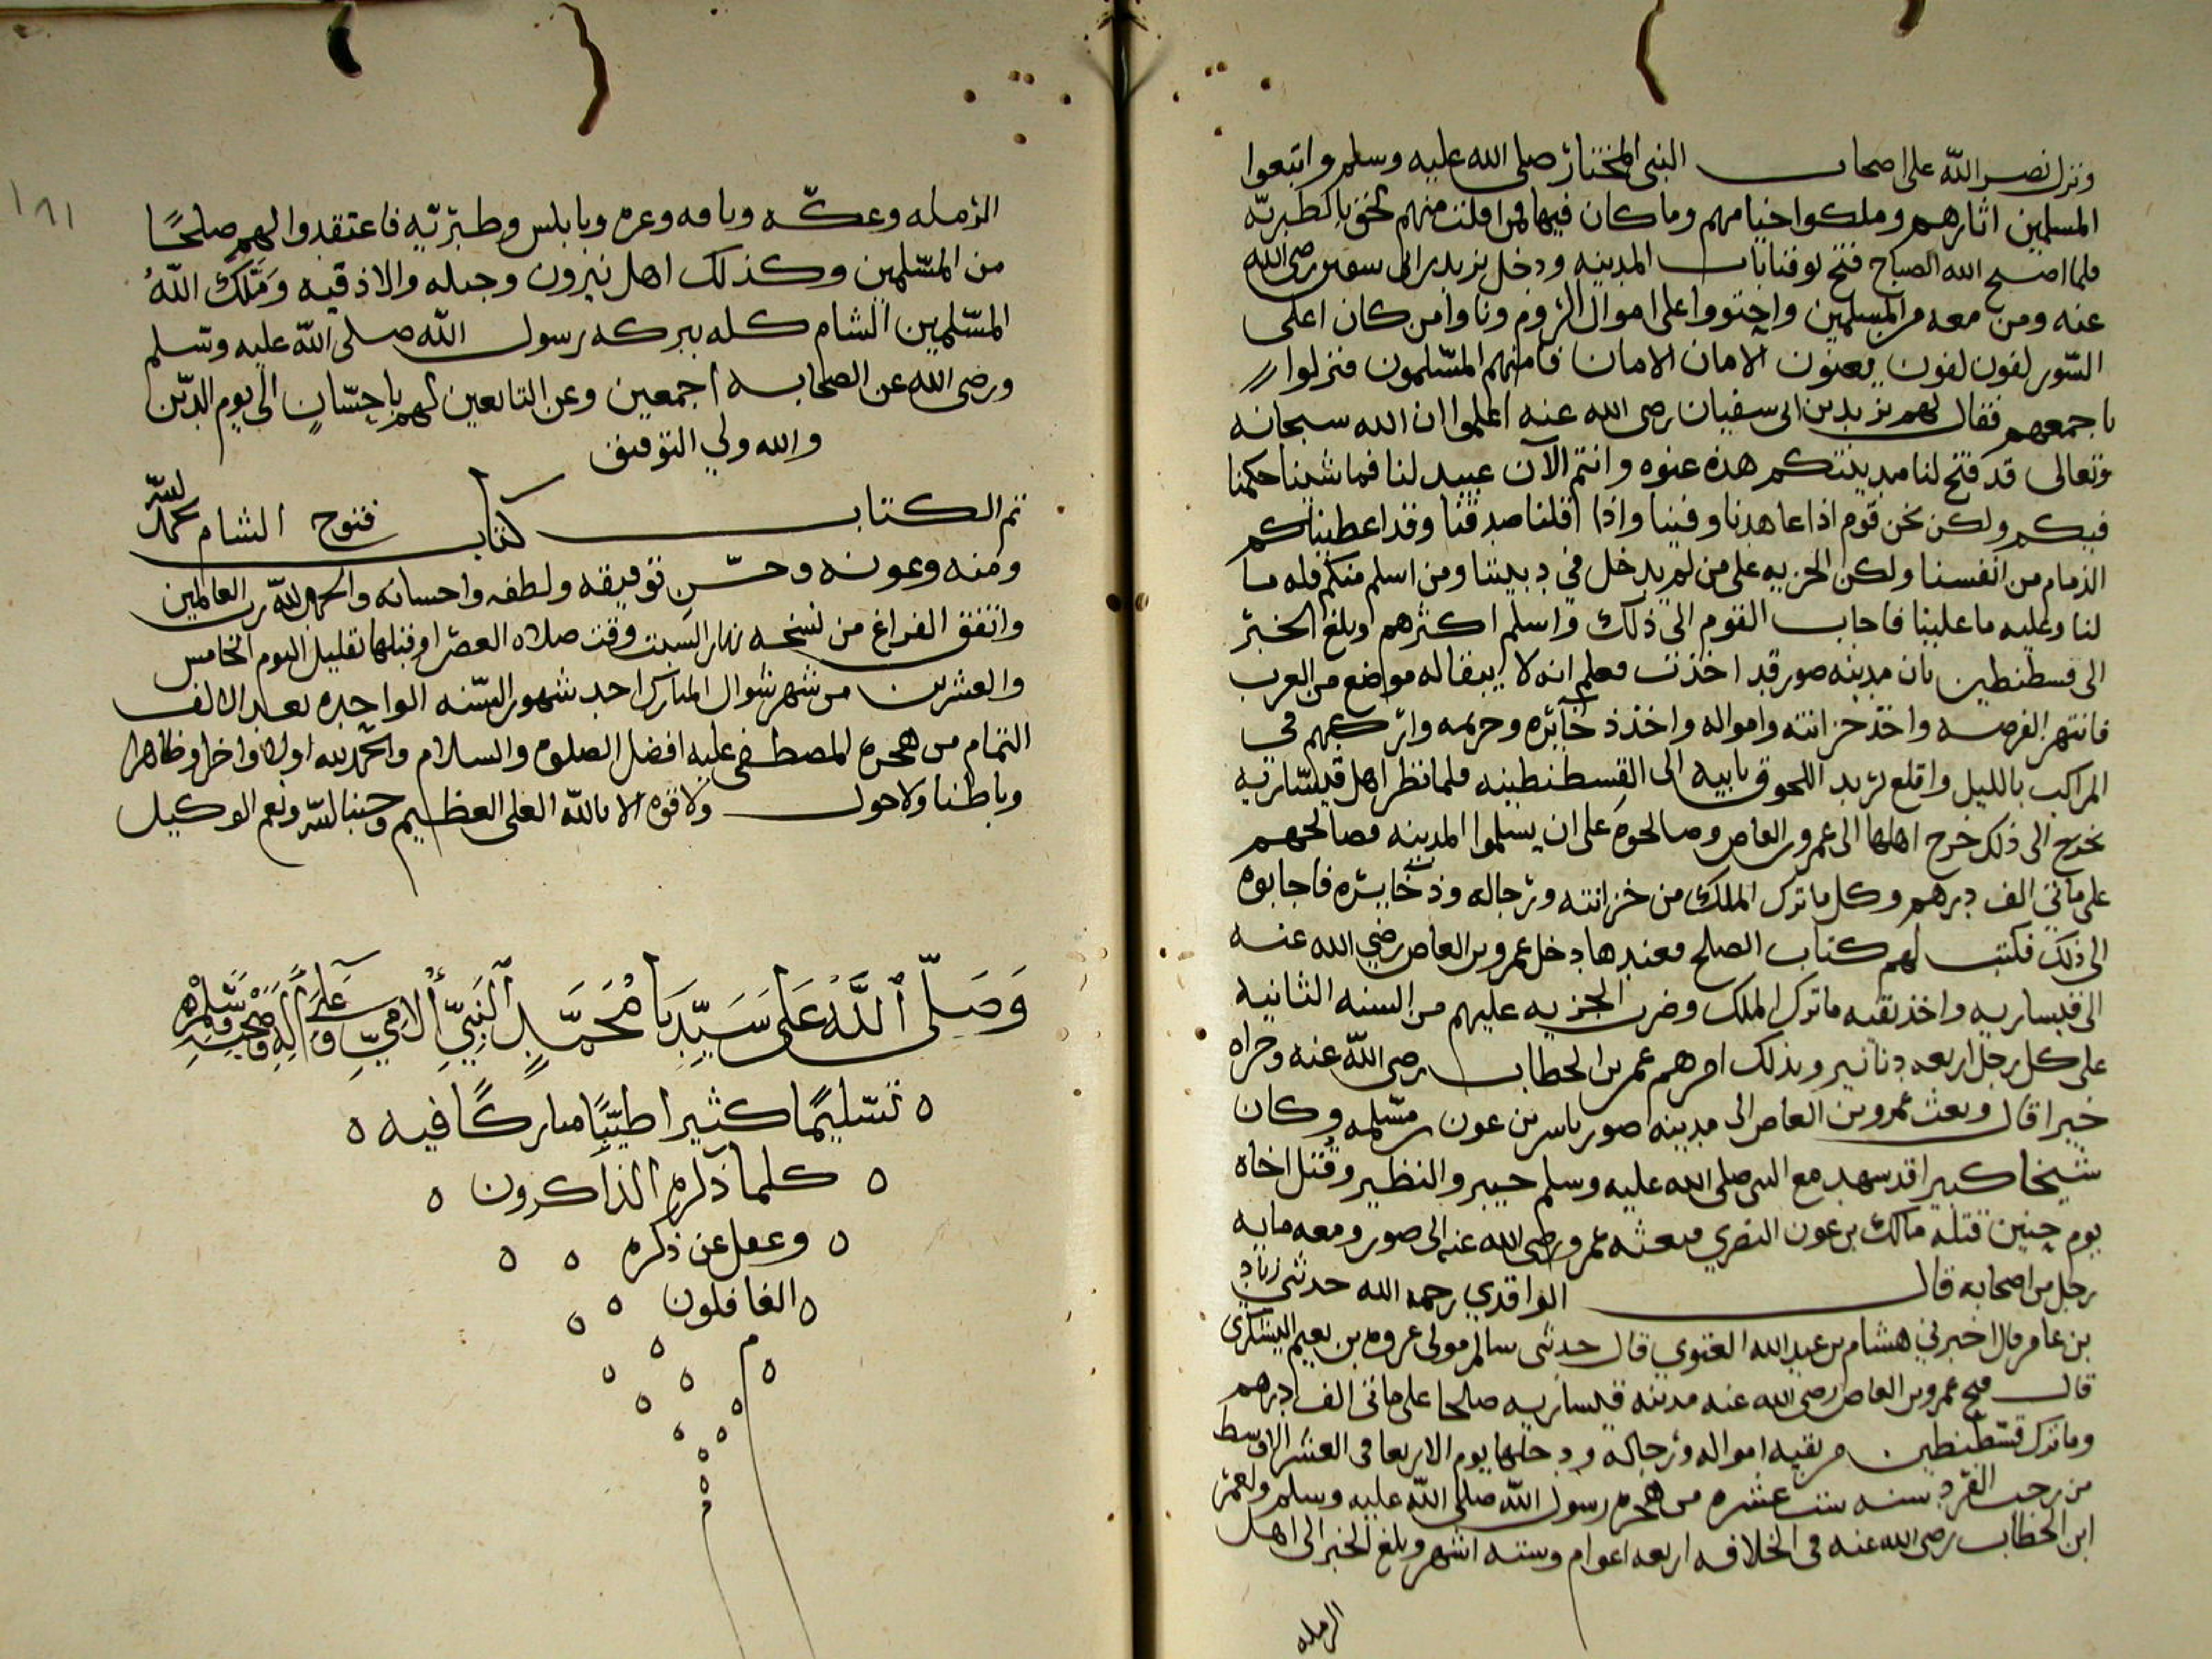 ونزل نصر الله على اصحاب النبي المختار صلى الله عليه وسلم واتبعوا
المسلمين اثارهم وملكوا خيامهم وما كان فيها فمن افلت منهم لحق بالطبريه
فلما اصبح الله الصباح فتح يوقنا باب المدينه ودخل يزيد بن ابي سفين رضى الله
عنه ومن معه من المسلمين واحتووا على اموال الروم ونادوا من كان اعلى
السور لفون لفون يعنون الامان الامان فامنهم المسلمون فنزلوا
باجمعهم فقال لهم يزيد بن ابي سفيان رضى الله عنه اعلموا ان الله سبحانه
وتعالى قد فتح لنا مدينتكم هذه عنوه وانتم الآن عبيد لنا فما شئنا حكمنا
فيكم ولكن نحن قوم اذا عاهدنا وفينا واذا قلنا صدقنا وقد اعطيناكم
الذمام من انفسنا ولكن الجزيه على من لم يدخل في ديننا ومن اسلم منكم فله ما
لنا وعليه ما علينا فاجاب القوم الى ذلك واسلم اكثرهم وبلغ الخبر
الى قسطنطين بان مدينه صور قد اخذت فعلم انه لا بقا له مواضع من العرب
فانتهز الفرصه واخذ خزانته وامواله واخذ ذخآئره وحريمه واركبهم في
المراكب بالليل واقلع يريد اللحوق بابيه الى القسطنطينه فلما نظر اهل قيساريه
نحريج الى ذلك خرج اهلها الى عمرو بن العاص وصالحوه على ان يسلموا المدينه فصالحهم
على مأتي الف درهم وكل ما ترك الملك من خزانته ورجاله وذخائره فاجابوه
الى ذلك فكتب لهم كتاب الصلح فعندها دخل عمرو بن العاص رضي الله عنه
الى قيساريه واخذ بقيه ما ترك الملك وضرب الجزيه عليهم من السنه الثانيه
على كل رجل اربعه دنانير وبذلك امرهم عمر بن الخطاب رضى الله عنه وجزاه
خيرا قال وبعث عمرو بن العاص الى مدينه صور ياسر بن عون بن مسلمه وكان
شيخا كبيرا قد شهد مع النبي صلى الله عليه وسلم خيبر والنظير وقتل اخاه
يوم حنين قتله مالك بن عون النصري فبعثه عمرو رضي الله عنه الى صور ومعه مايه
رجل من اصحابه قال الواقدي رحمه الله حدثني زياد
بن عامر قال اخبرني هشام بن عبد الله الغنوي قال حدثني سالم مولى عروه بن نعيم اليشكري
قال فتح عمرو بن العاص رضي الله عنه مدينه قيساريه صلحا على مأتي الف درهم
وما ترك قسطنطين من بقيه امواله ورجاله ودخلها يوم الاربعا في العشر الاوسط
من رجب الفرد سنه ست عشره من هجره رسول الله صلى الله عليه وسلم ولعمر
ابن الخطاب رضى الله عنه في الخلافه اربعه اعوام وسته اشهر وبلغ الخبر الى اهل
الرمله
١٨١
الرمله وعكه ويافه وعزه ونابلس وطبريه فاعتقدوا لهم صلحًا
من المسلمين وكذلك اهل بيرون وجبله والاذقيه ومَلَّكَ اللهُ
المسلمين الشام كله ببركه رسول الله صلى الله عليه وسلم
ورضى الله عن الصحابه اجمعين وعن التابعين لهم باحسانٍ الى يوم الدين
والله ولي التوفيق
تم الكتاب كتاب فتوح الشام بحمد الله
ومنه وعونه وحسن توفيقه ولطفه واحسانه والحمد لله رب العالمين
واتفق الفراغ من نسخه نهار السبت وقت صلاه العصر او قبلها بقليل اليوم الخامس
والعشرين من شهر شوال المبارك احد شهور السنه الواحده بعد الالف
التمام من هجره المصطفى عليه افضل الصلوه والسلام والحمد لله اولا واخرا وظاهرا
وباطنا ولا حول ولا قوه الا بالله العلى العظيم وحسبنا الله ونعم الوكيل
وَصَلّى اللَّهُ عَلى سَيِّدِنَا مُحَمَّدٍ النَّبِيِّ الأُمِيِّ وَعَلَى آلِهِ وَصَحْبِهِ وَسَلِّمْ
تسليمًا كثيرا طيّبًا مباركًا فيه
كلما ذكره الذاكرون
وغفل عن ذكره
الغافلون
م